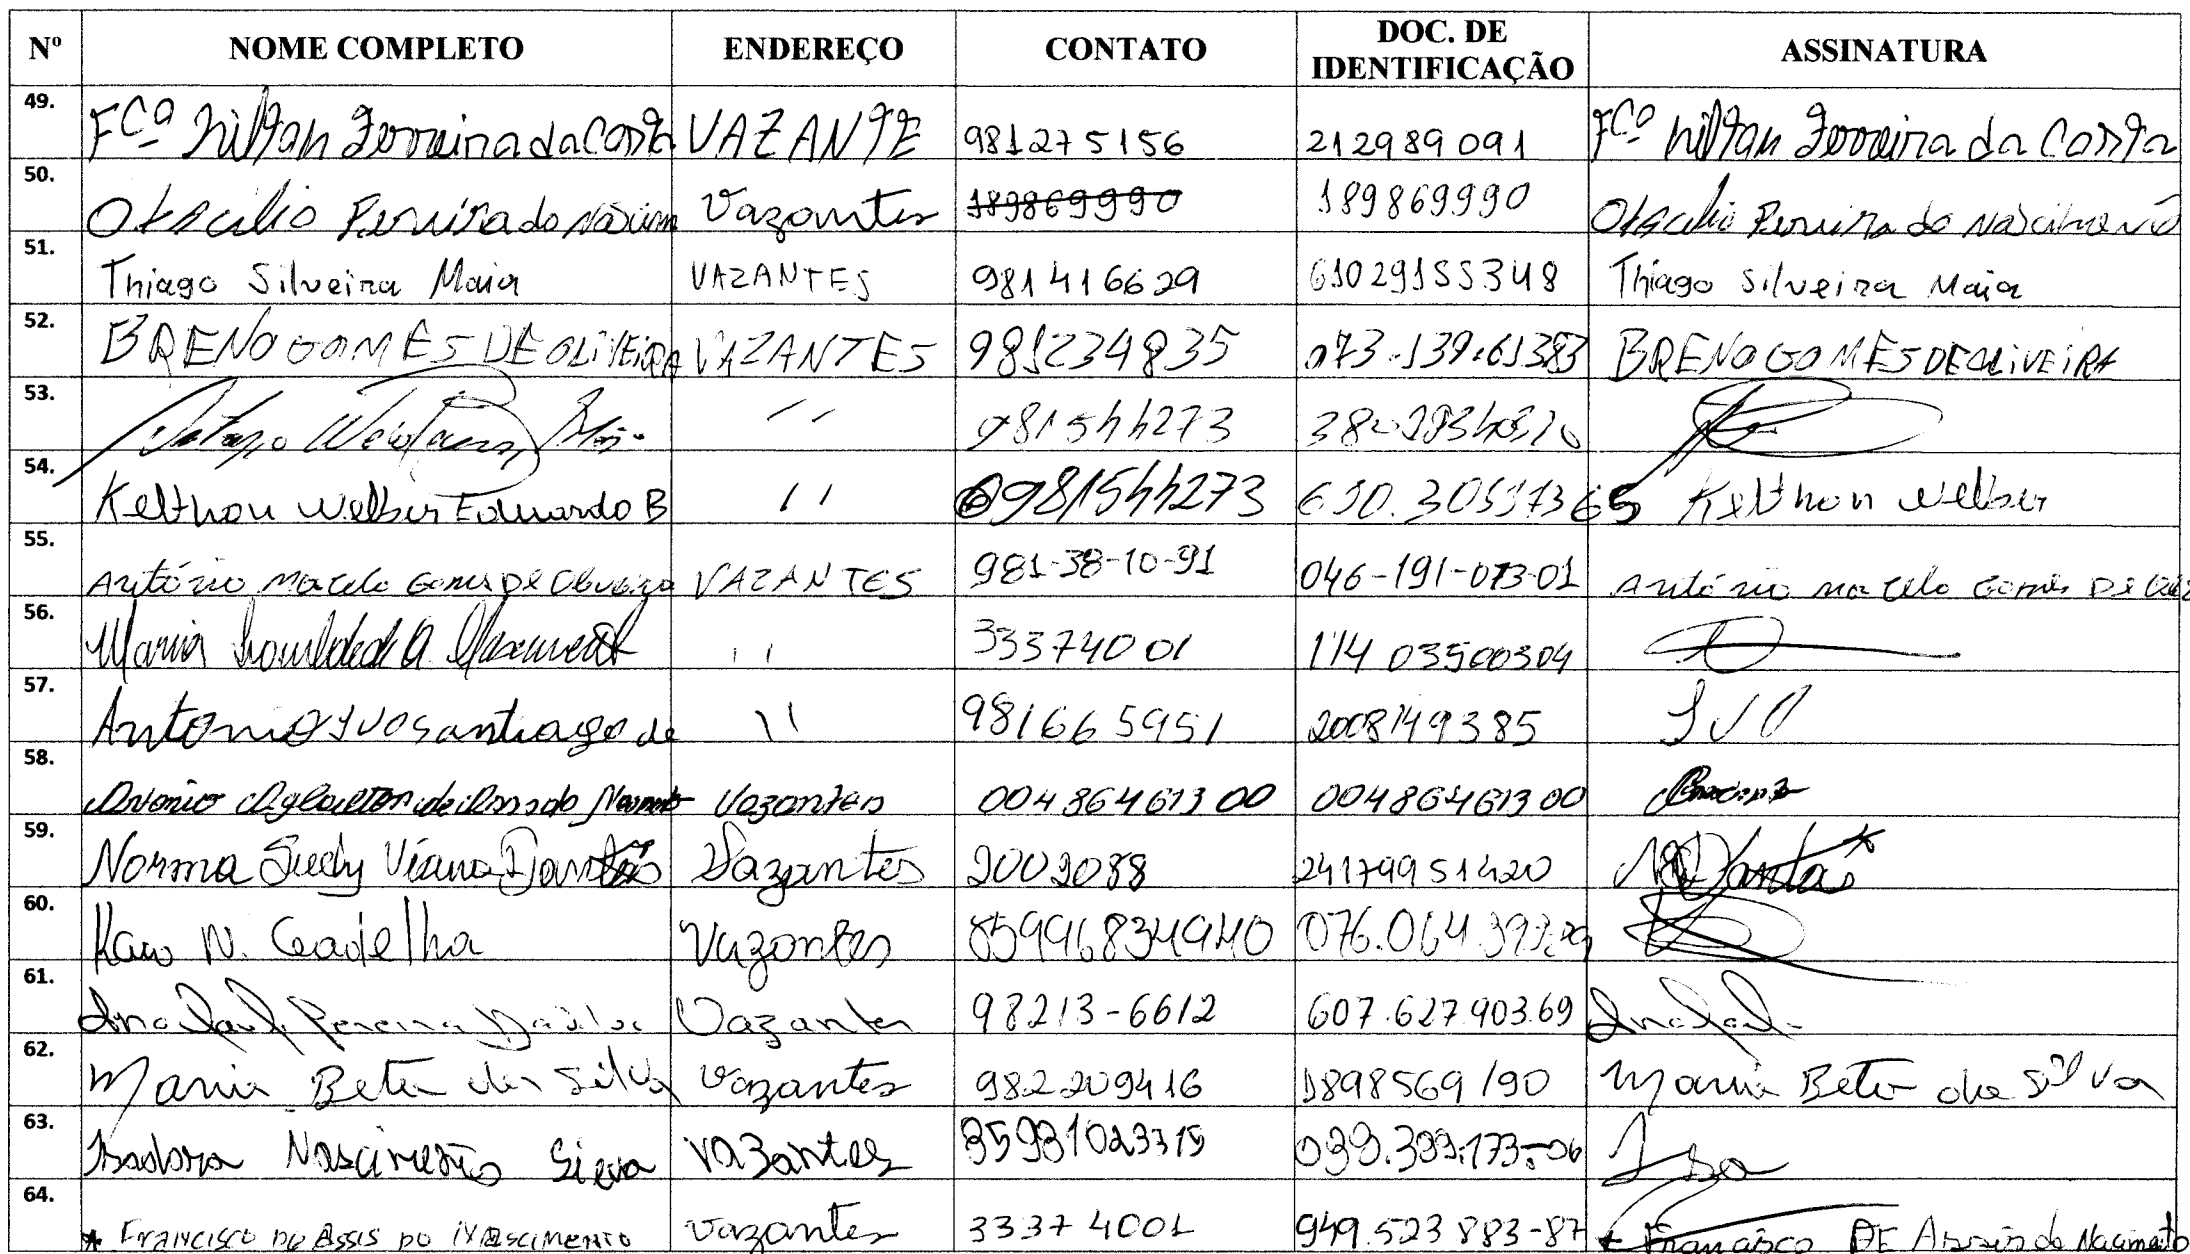 Nº NOME COMPLETO ENDEREÇO CONTATO DOC. DE IDENTIFICAÇÃO ASSINATURA
49. Fcº Nilton Ferreira da Costa VAZANTE 981275156 212989091 Fcº Nilton Ferreira da Costa
50. Otacilio Pereira do Nascim Vazantes 189869990 189869990 Otacilio Pereira do Nascimento
51. Thiago Silveira Maia VAZANTES 981416629 61029155348 Thiago Silveira Maia
52. BRENO GOMES DE OLIVEIRA VAZANTES 981234835 073.139.61383 BRENO GOMES DE OLIVEIRA
53. '' 981544273
54. Kelthon Welber Eduardo B '' 0981544273 Kelthon Welber
55. Antônio Marcelo Gomes De Oliveira VAZANTES 981-38-10-91 046-191-073-01 Antônio Marcelo Gomes De
56. Maria '' 33374001 114 03500304
57. Antonio Ivo Santiago de '' 981665951 2008149385 IVO
58. Antonio Vazantes 00486461300 00486461300
59. Norma Suely Viana Dantas Vazantes 2002088 24179951420 Dantas
60. N. Gadelha Vazantes 85996834940 076.064.393.09
61. Ana Paula Pereira Vazantes 98213-6612 607.627.903.69 Ana Paula
62. Maria Beter da Silva Vazantes 982209416 1898569190 Maria Beter da Silva
63. Isadora Nascimento Silva Vazantes 85981023315 039.399.173-06 Isa
64. * FRANCISCO DE ASSIS DO NASCIMENTO Vazantes 33374001 949.523883-87 * Francisco DE Assis do Nascimento